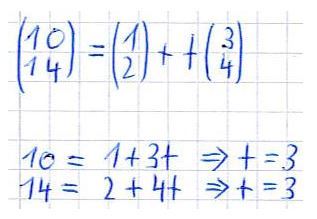 (10 14) = (1 2) + t (3 4)
10 = 1+3t ⇒ t = 3
14 = 2+4t ⇒ t = 3